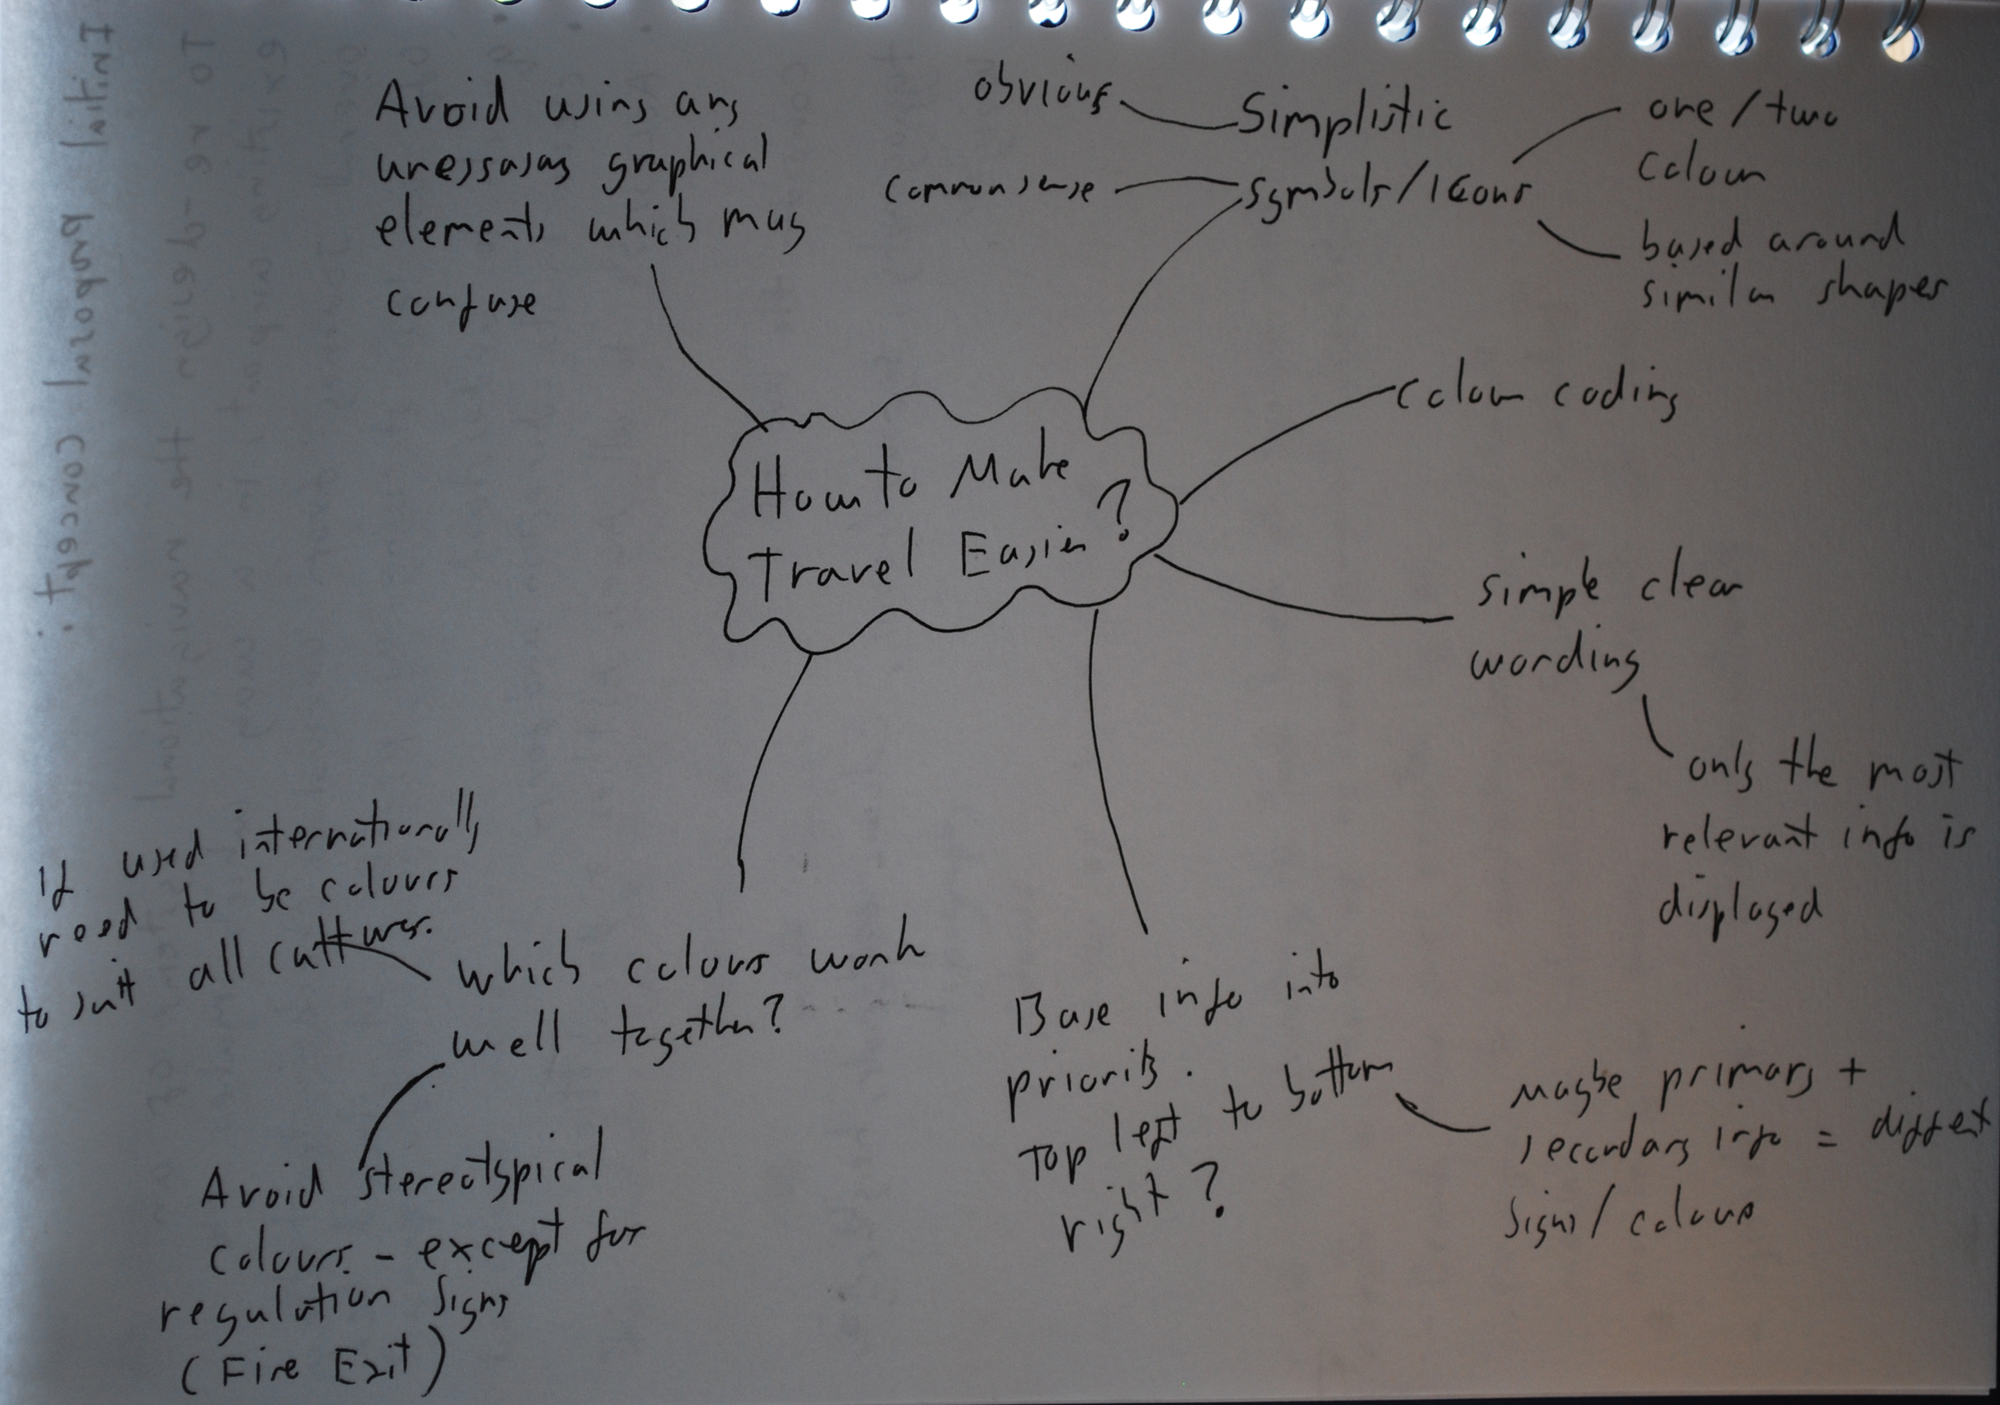 Avoid using any
unessasary graphical
elements which may
confuse
obvious
Simplistic
commonsense
symbols/icons
one/two
colour
based around
similar shapes
colour coding
How to Make
Travel Easier?
simple clear
wording
only the most
relevant info is
displayed
If used internationally
need to be colours
to suit all cultures.
which colours work
well together?
Avoid stereotypical
colours - except for
regulation signs
(Fire Exit)
Base info into
priority.
Top left to bottom
right?
maybe primary +
secondary info = diffent
signs/colours
Initial proposal concept:
To re-design the navigational